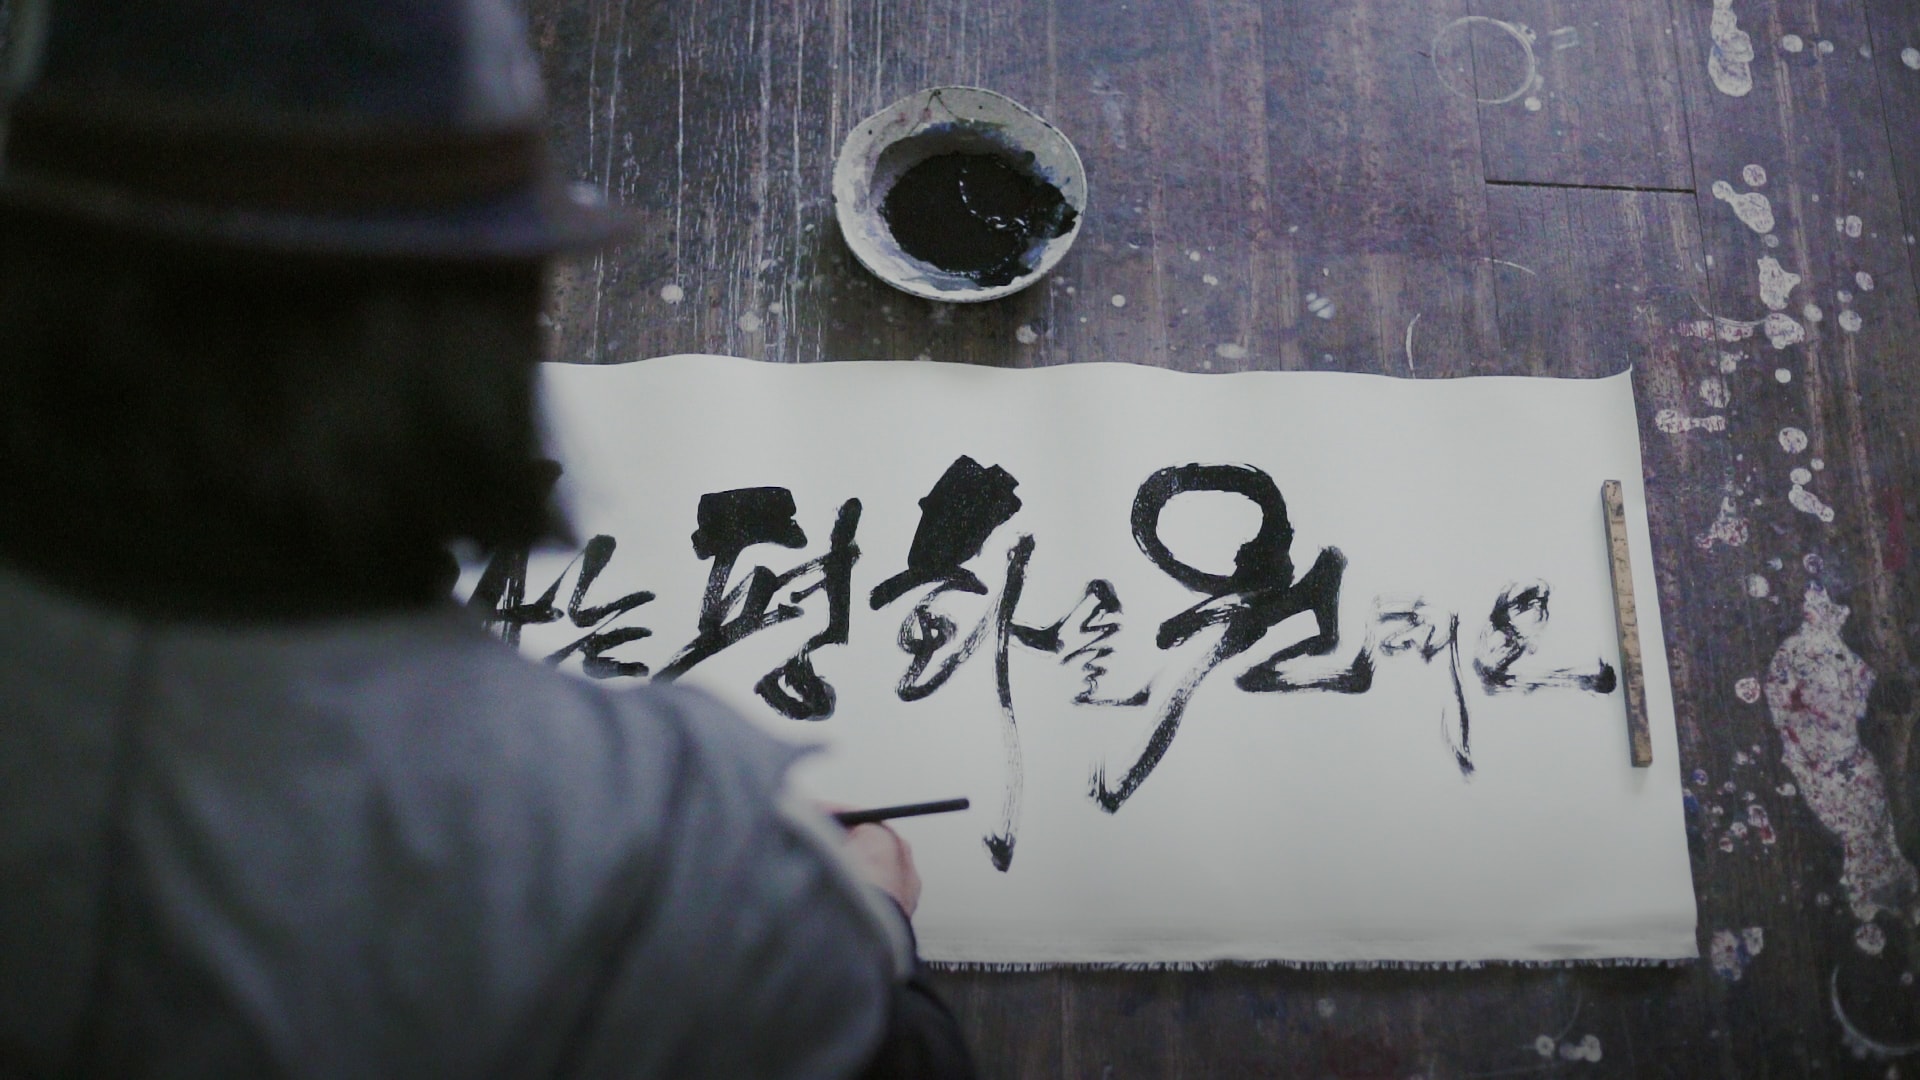 는 평화를 원해요